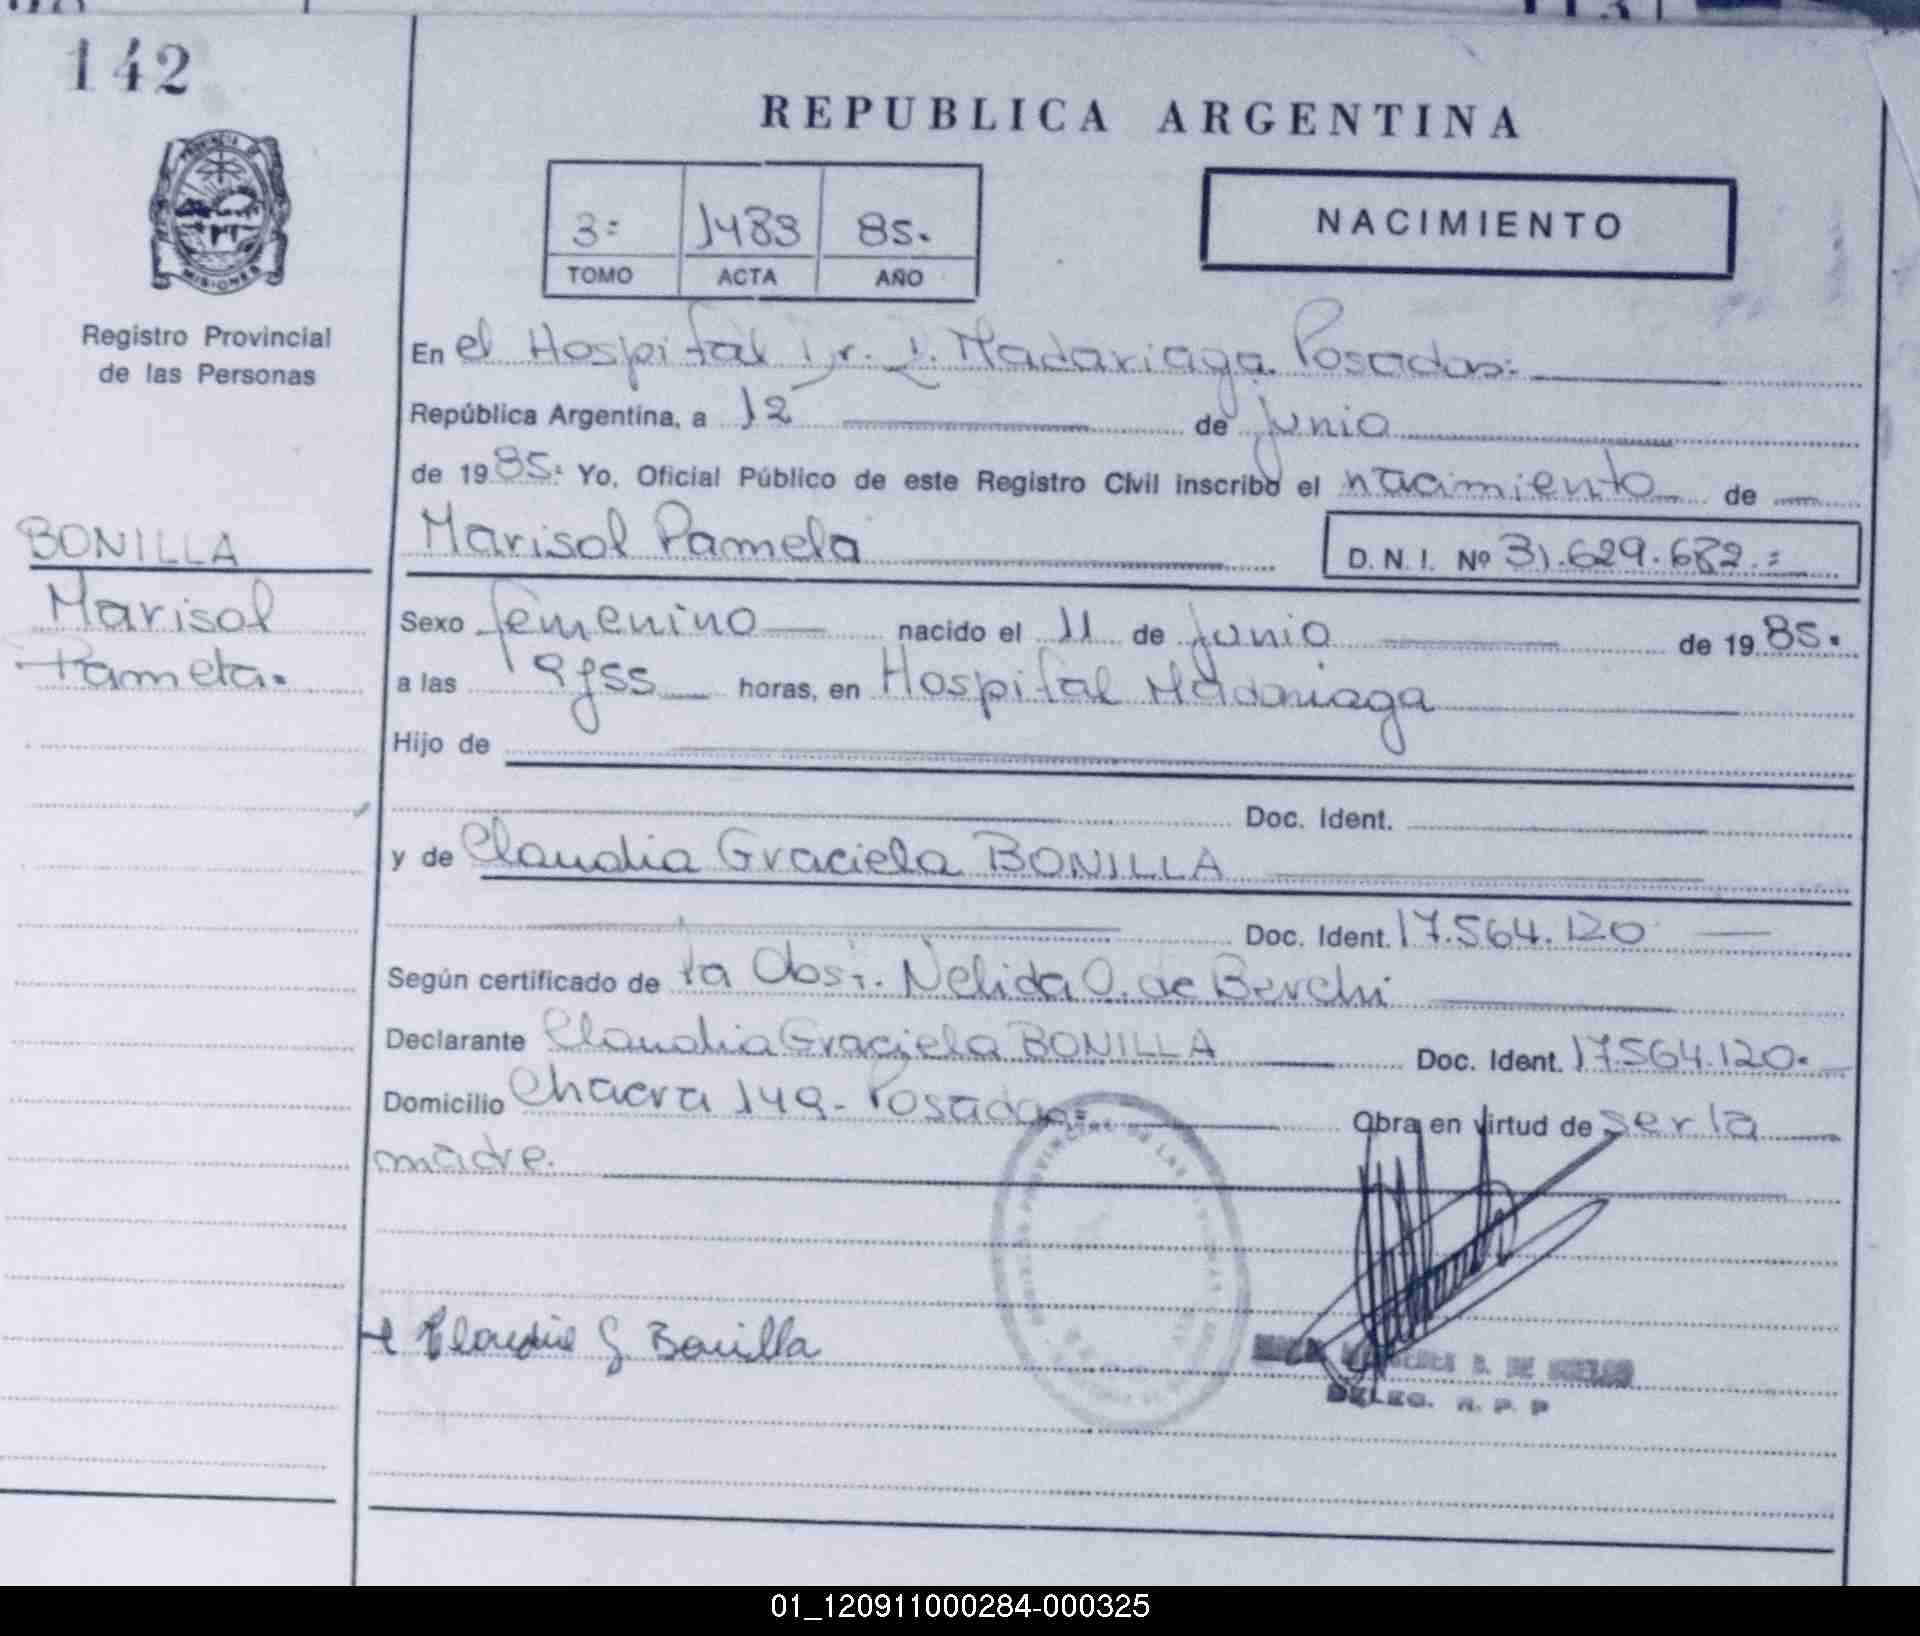 142
REPUBLICA ARGENTINA
PROVINCIA DE
MISIONES
Registro Provincial
de las Personas
3=
1483
85.
TOMO
ACTA
AÑO
NACIMIENTO
En el Hospital Dr. R. Madariaga. Posadas:
República Argentina, a 12 de junio
de 1985: Yo, Oficial Público de este Registro Civil inscribo el nacimiento de
Marisol Pamela
D. N. I. Nº 31.629.682.=
BONILLA
Marisol
Pamela.
Sexo femenino nacido el 11 de junio de 1985.
a las 9y55 horas, en Hospital Madariaga
Hijo de
Doc. Ident.
y de Claudia Graciela BONILLA
Doc. Ident. 17.564.120
Según certificado de la Obst. Nelida O. de Berchi
Declarante Claudia Graciela BONILLA Doc. Ident. 17.564.120.
Domicilio Chacra 149- Posadas= Obra en virtud de ser la
madre.
Claudia G Bonilla
DE
DELEG. R. P. P
01_120911000284-000325